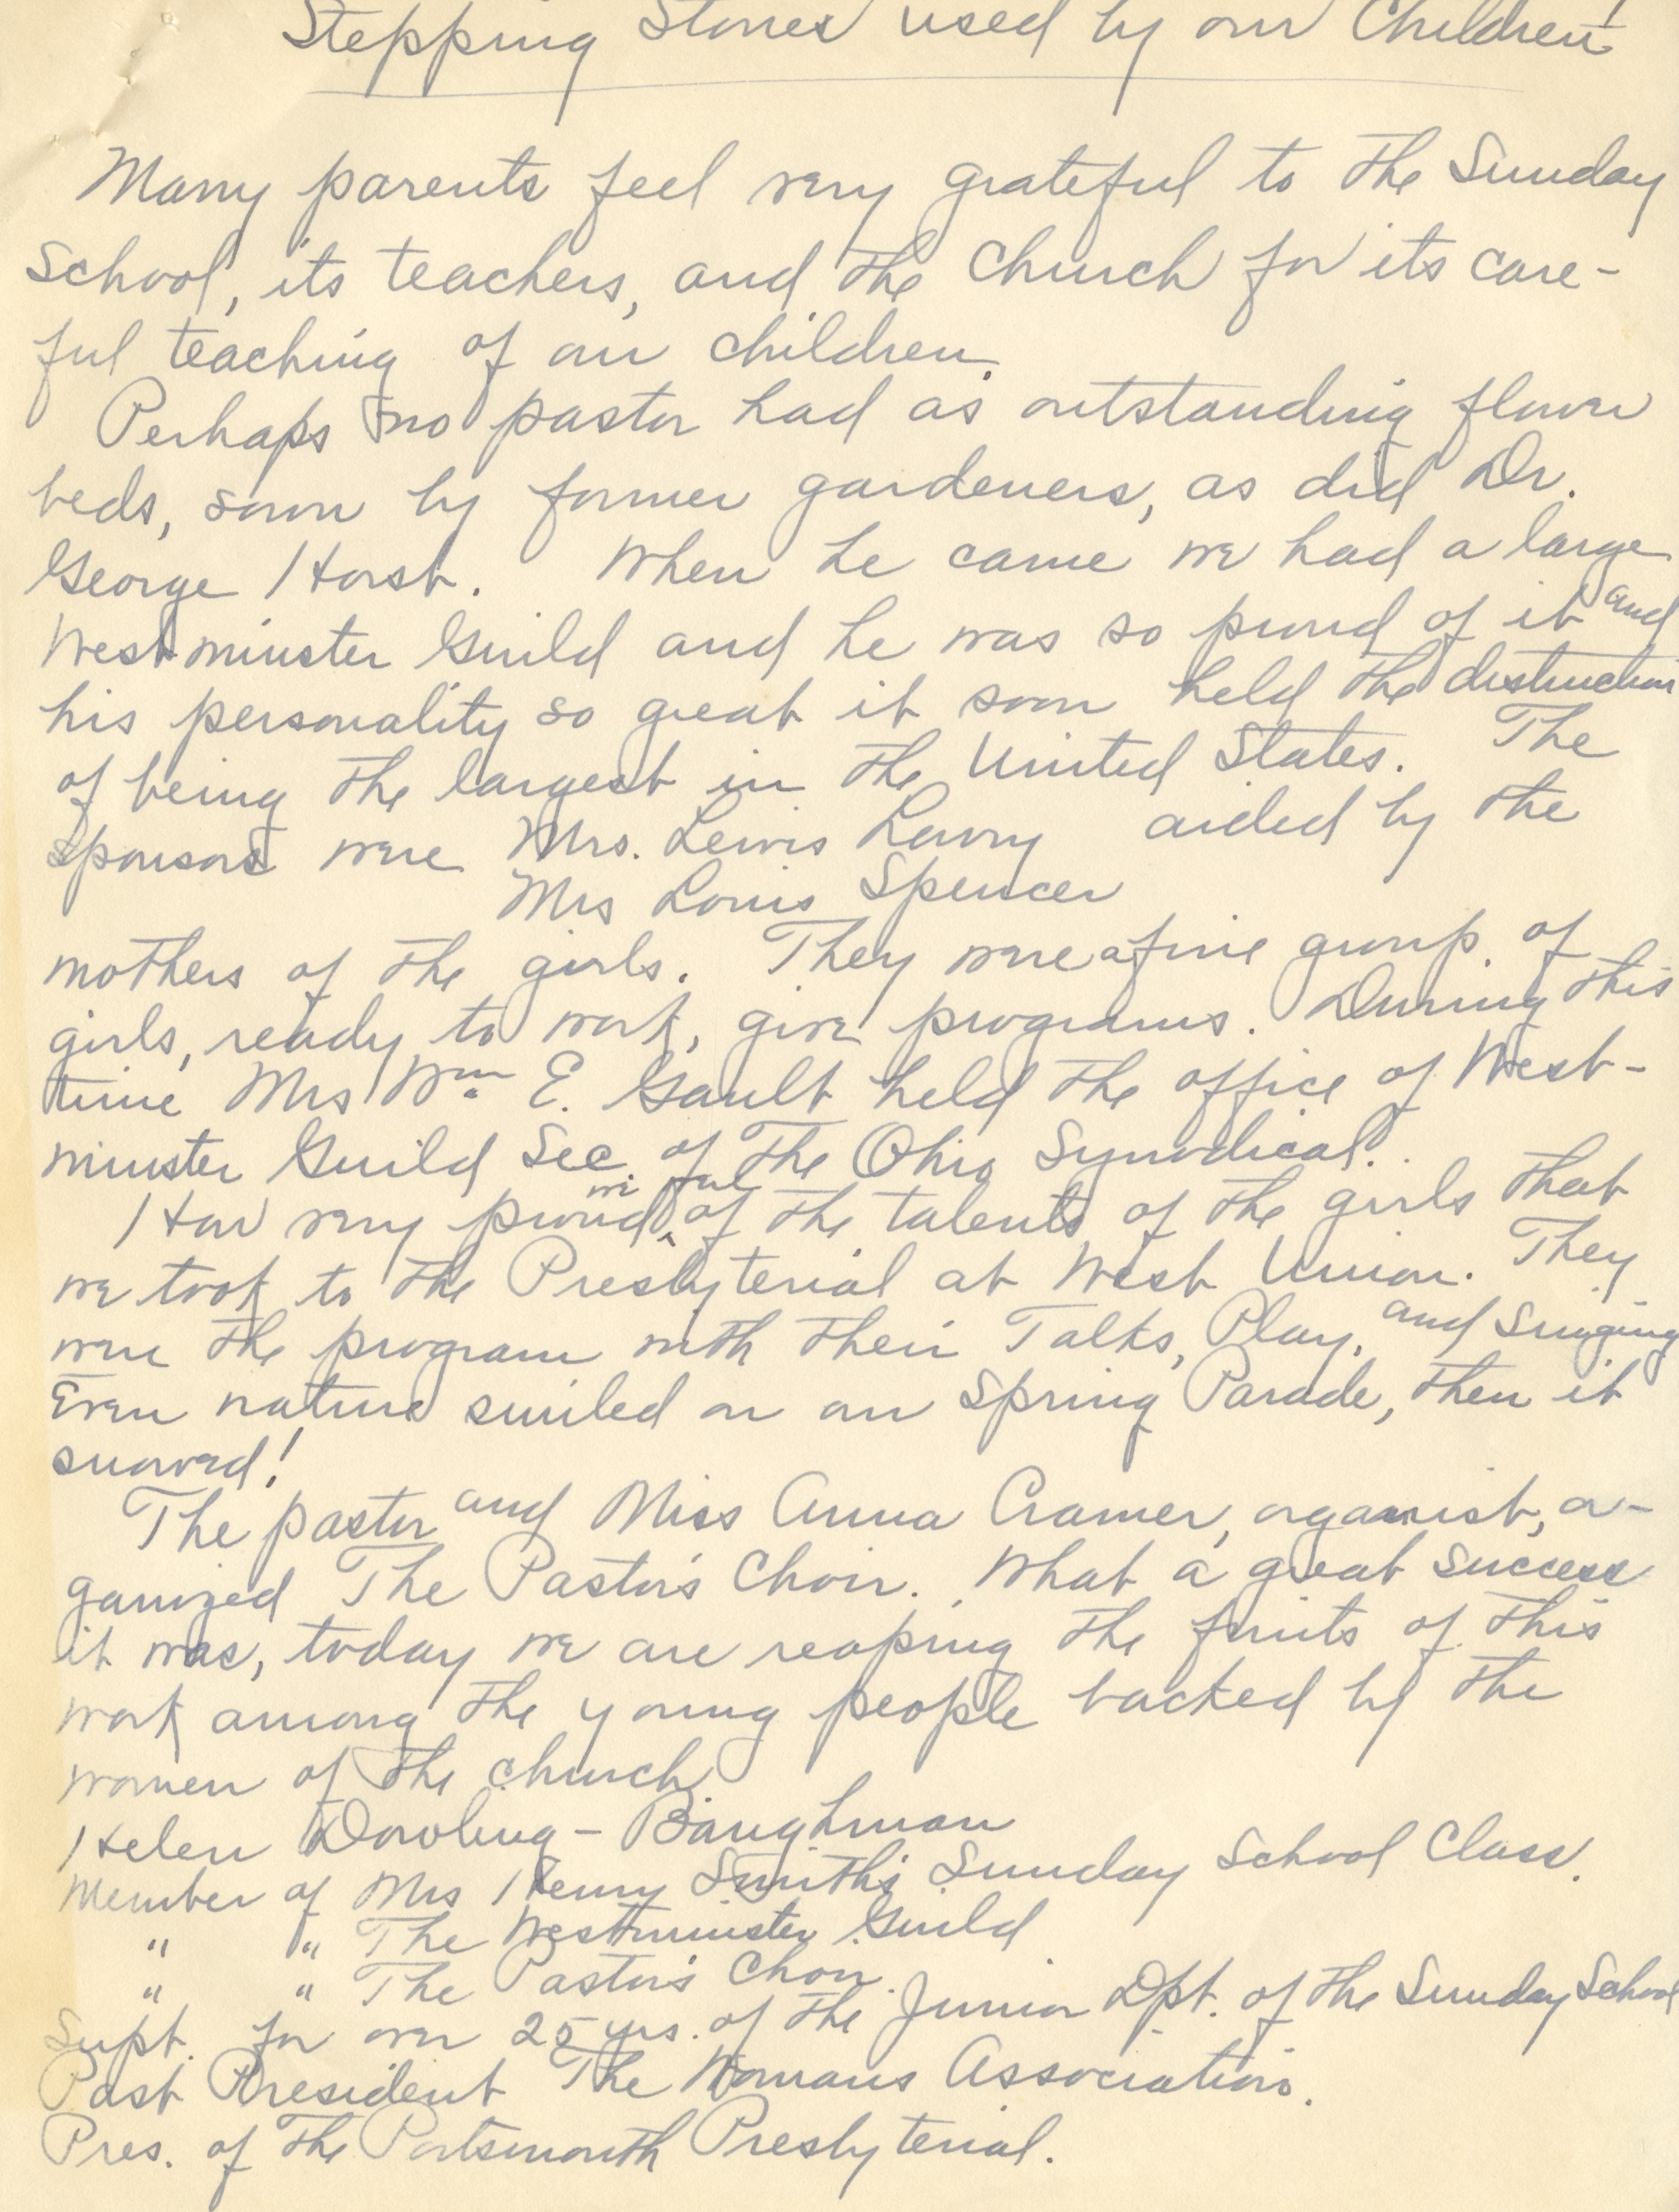 Stepping Stones used by our Children!
Many parents feel very grateful to the Sunday
School, its teachers, and the Church for its care-
ful teaching of our children.
Perhaps no pastor had as outstanding flower
beds, sown by former gardeners, as did Dr.
George Horst. When he came we had a large
Westminster Guild and he was so proud of it and
his personality so great it soon held the distinction
of being the largest in the United States. The
sponsors were Mrs. Lewis Lowry aided by the
Mrs Louis Spencer
mothers of the girls. They were a fine group of
girls, ready to work, give programs. During this
time Mrs Wm. E. Gault held the office of West-
minster Guild Sec. of The Ohio Synodical.
How very proud we of the talents of the girls that
we took to the Presbyterial at West Union. They
were the program with their Talks, Play, and Singing
Even nature smiled on our Spring Parade, then it
snowed!
The pastor and Miss Anna Cramer, organist, or-
ganized The Pastor's Choir. What a great success
it was, today we are reaping the fruits of this
work among the young people backed by the
women of the church
Helen Dowling - Baughman
Member of Mrs Henry Smith's Sunday School Class.
" " The Westminster Guild
" " The Pastor's Choir
Supt. for over 25 yrs. of the Junior Dpt. of the Sunday School
Past President The Womans Association.
Pres. of The Portsmouth Presbyterial.